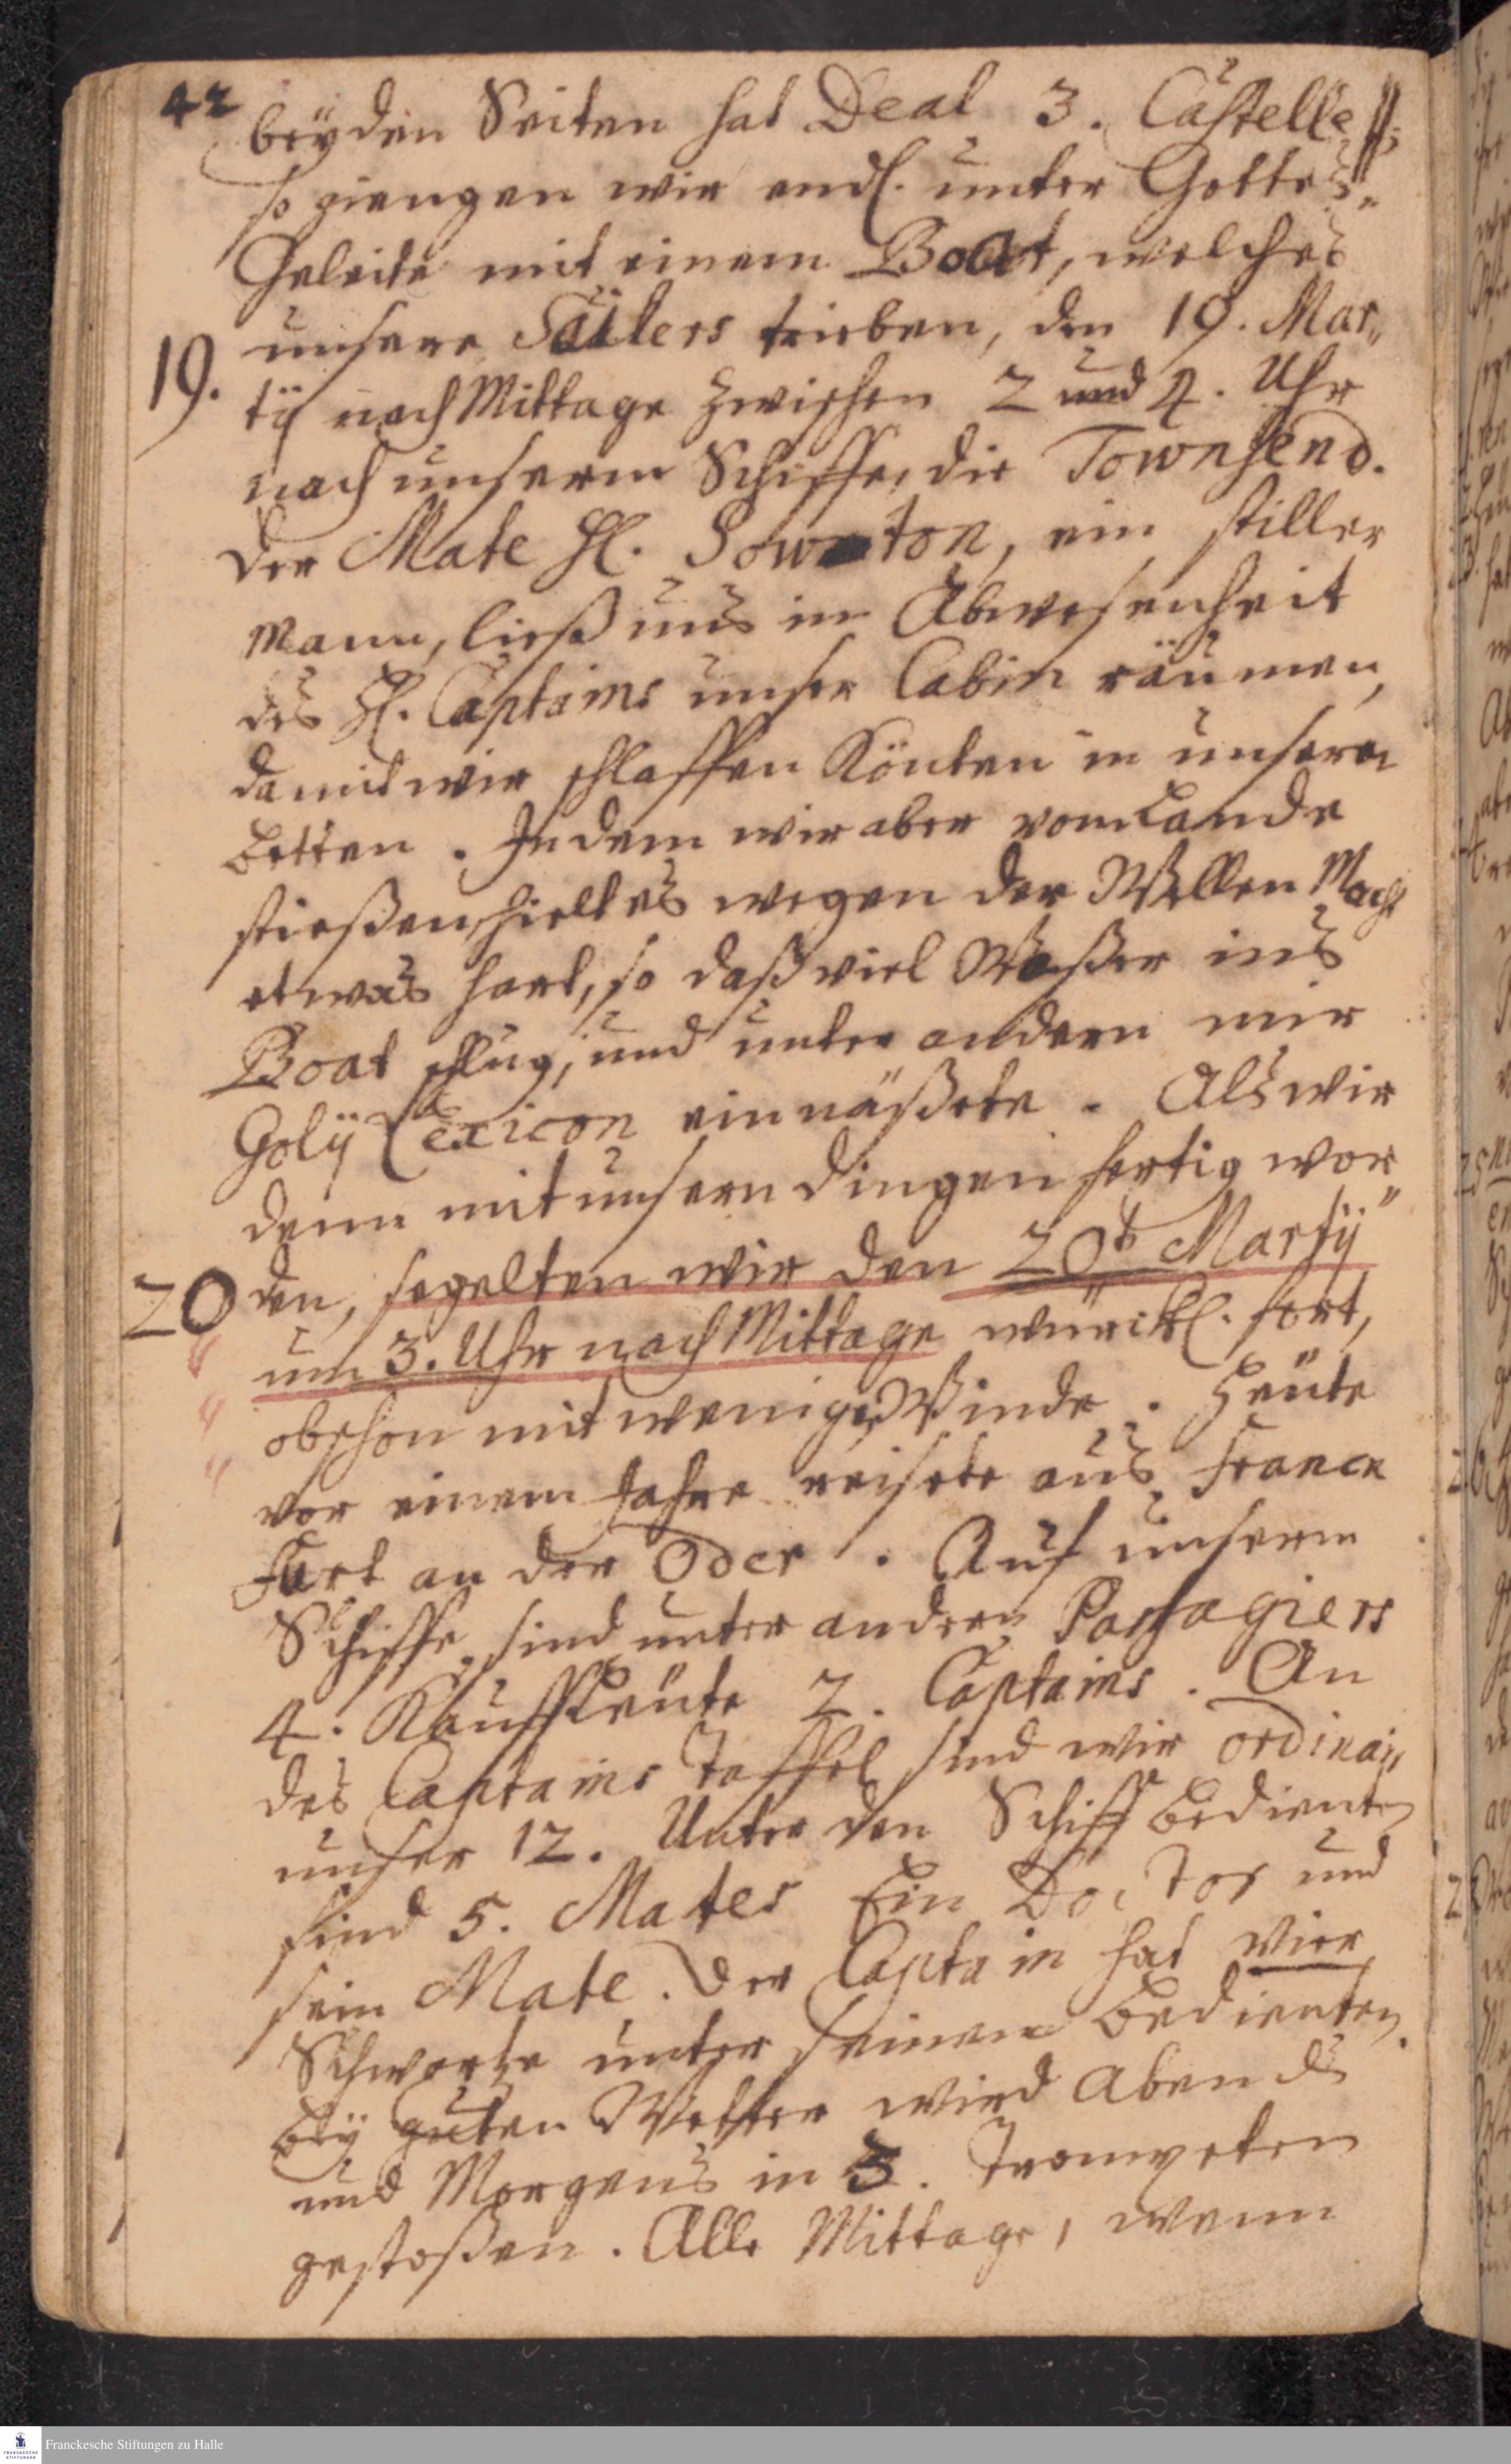 42
beyden Seiten hat Deal 3. Castelle ff;
so giengen wir endl. unter Gottes
Geleite mit einem Boat, welches
unsere Sailers trieben, den 19. Mar„
19.
tij nach Mittage zwischen 2 und 4. Uhr
nach unserm Schiffe, die Townsend.
Der Mate Hl. Sownton, ein stiller
Mann, ließ uns in Abwesenheit
des Hl. Captains unser Cabin räumen,
damit wir schlaffen Könten in unsern
Betten. Indem wir aber vom Lande
stießen, hielt es wegen der Wellen Macht
etwas hart, so daß viel Waßer ins
Boat schlug, und unter andern mir
Golij Lexicon einnäßete. Als wir
denn mit unsern Dingen fertig wor
20
den, segelten wir den 20t Martij
um 3. Uhr nach Mittage würckl. fort,
obschon mit wenige Winde. Heute
vor einem Jahre reisete aus Franck
Furt an der Oder. Auf unserm
Schiffe, sind unter andern Passagiers
4. Kauffleute 2. Captains. An
des Captains Taffel sind wir ordinair
unser 12. Unter den Schiff bedienten
sind 5. Mates Ein Doctor und
sein Mate. Der Captain hat vier
Schwartze unter seinen Bedienten.
Bey guten Wetter wird Abends
und Morgens in 3. Trompeten
gestoßen. Alle Mittage, wenn
Franckesche Stiftungen zu Halle